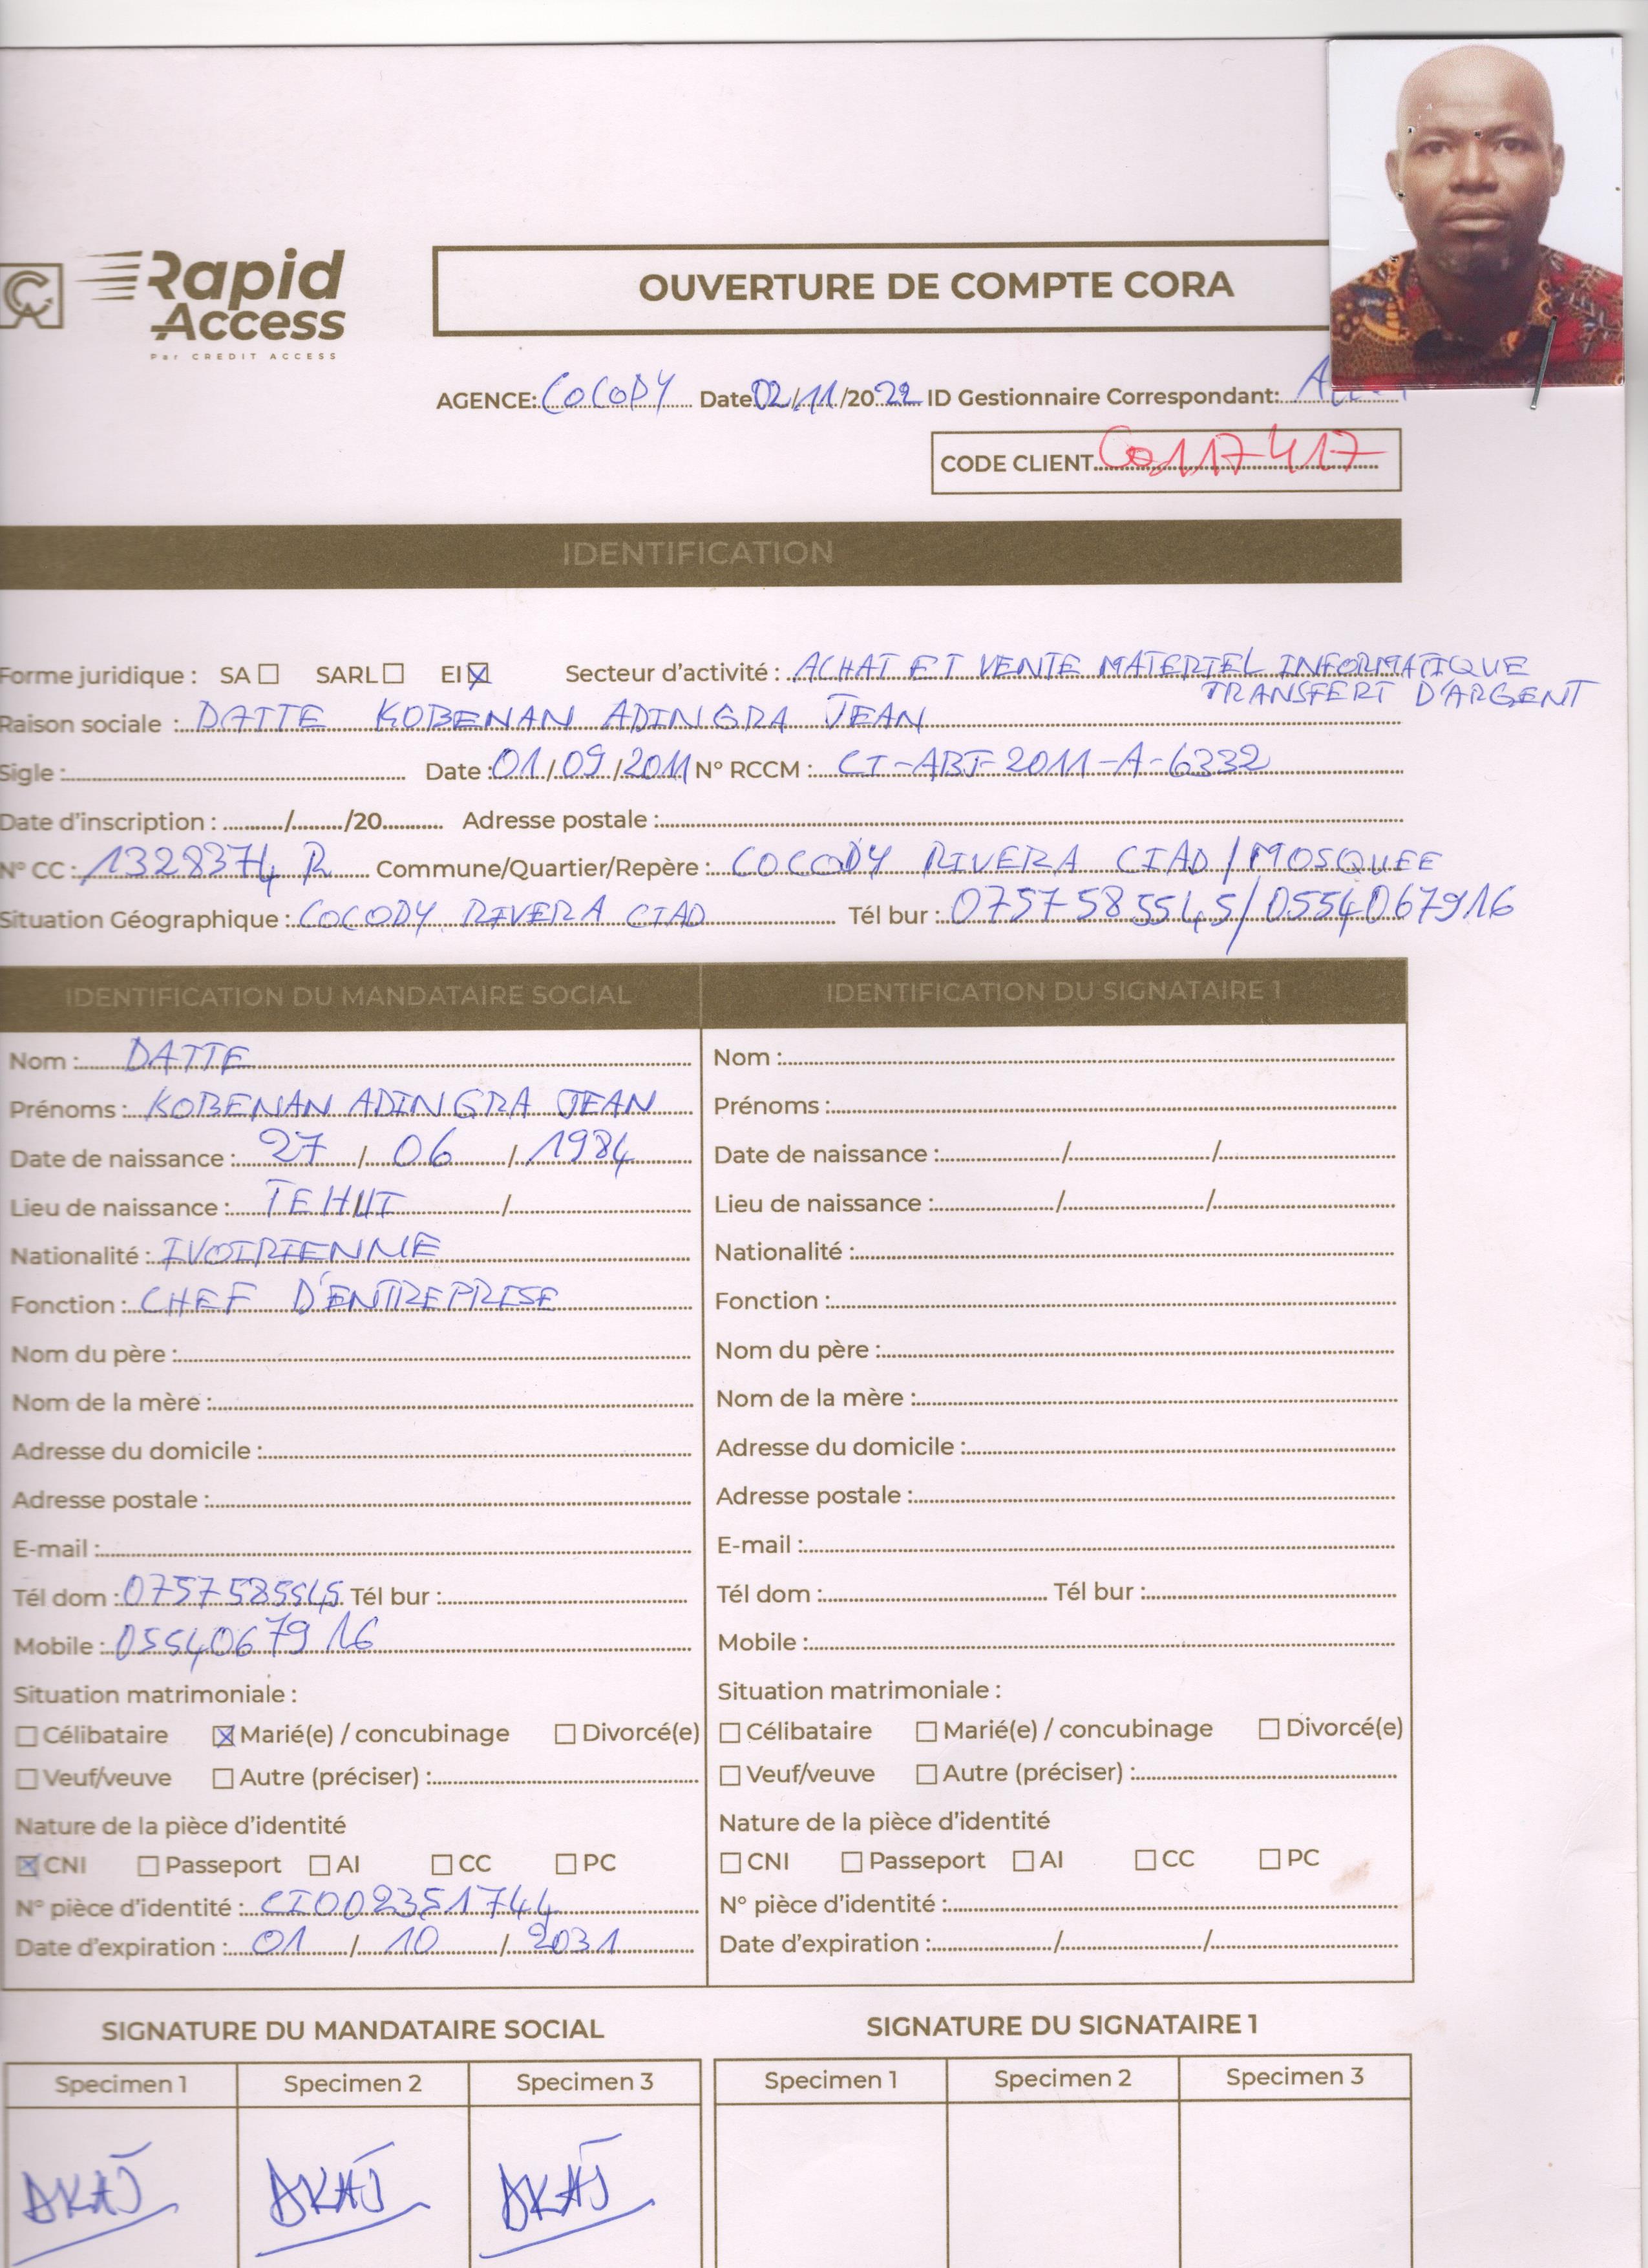 Rapid
Access
Par CREDIT ACCESS
OUVERTURE DE COMPTE CORA
AGENCE: COCODY Date 02/11/2022 ID Gestionnaire Correspondant:
CODE CLIENT C0117417
IDENTIFICATION
Forme juridique : SA ☐ SARL ☐ EI ☒ Secteur d'activité : ACHAT ET VENTE MATERIEL INFORMATIQUE
TRANSFERT D'ARGENT
Raison sociale : DATTE KOBENAN ADINGRA JEAN
Sigle : Date : 01/09/2011 N° RCCM : CI-ABJ-2011-A-6332
Date d'inscription : ........../........./20.......... Adresse postale :
N° CC : 1328374 R Commune/Quartier/Repère : COCODY RIVERA CIAD / MOSQUEE
Situation Géographique : COCODY RIVERA CIAD Tél bur : 0757585545/0554067916
IDENTIFICATION DU MANDATAIRE SOCIAL
Nom : DATTE
Prénoms : KOBENAN ADINGRA JEAN
Date de naissance : 27 / 06 / 1984
Lieu de naissance : /
Nationalité : IVOIRIENNE
Fonction : CHEF D'ENTREPRISE
Nom du père :
Nom de la mère :
Adresse du domicile :
Adresse postale :
E-mail :
Tél dom : 0757585545 Tél bur :
Mobile : 0554067916
Situation matrimoniale :
☐ Célibataire ☒ Marié(e) / concubinage ☐ Divorcé(e)
☐ Veuf/veuve ☐ Autre (préciser) :
Nature de la pièce d'identité
☒ CNI ☐ Passeport ☐ AI ☐ CC ☐ PC
N° pièce d'identité : CI002351744
Date d'expiration : 01 / 10 / 2031
IDENTIFICATION DU SIGNATAIRE 1
Nom :
Prénoms :
Date de naissance : / /
Lieu de naissance : / /
Nationalité :
Fonction :
Nom du père :
Nom de la mère :
Adresse du domicile :
Adresse postale :
E-mail :
Tél dom : Tél bur :
Mobile :
Situation matrimoniale :
☐ Célibataire ☐ Marié(e) / concubinage ☐ Divorcé(e)
☐ Veuf/veuve ☐ Autre (préciser) :
Nature de la pièce d'identité
☐ CNI ☐ Passeport ☐ AI ☐ CC ☐ PC
N° pièce d'identité :
Date d'expiration : / /
SIGNATURE DU MANDATAIRE SOCIAL
Specimen 1 Specimen 2 Specimen 3
DKAJ DKAJ DKAJ
SIGNATURE DU SIGNATAIRE 1
Specimen 1 Specimen 2 Specimen 3